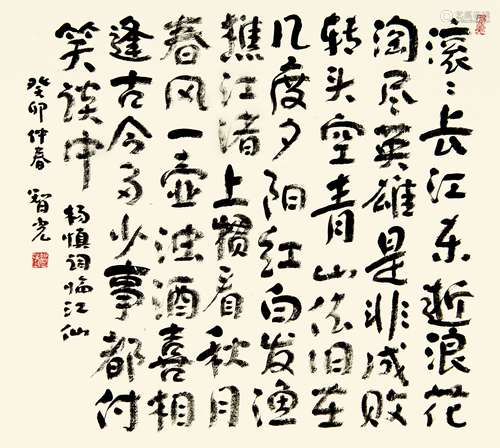 滚〻长江东逝浪花
淘尽英雄是非成败
转头空青山依旧在
几度夕阳红白发渔
樵江渚上惯看秋月
春风一壶浊酒喜相
逢古今多少事都付
笑谈中 杨慎词临江仙
癸卯仲春 智光